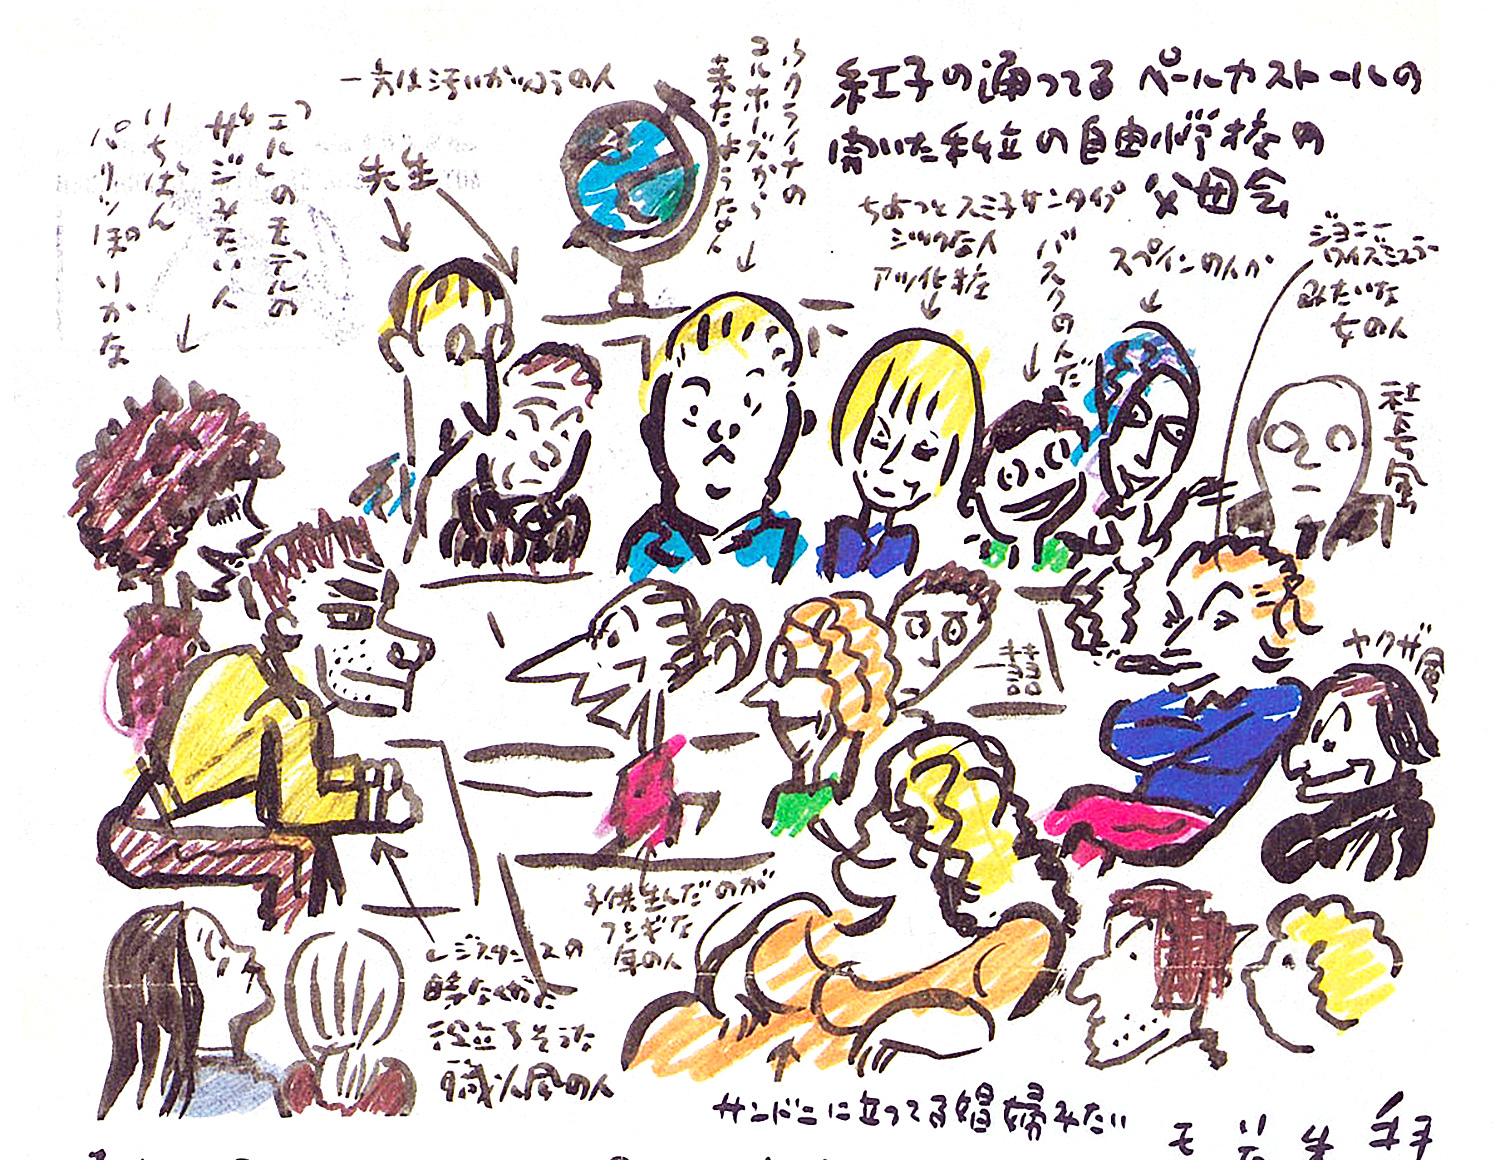 紅子の通ってるペールカストールの
開いた私立の自由学校の
父母会
一寸は汚いがふうの人
先生
ウクライナの
コルホーズから
来たような人
ちよっとスミ子サンタイプ
シックな人
アツ化粧
バスクのんだ
スペインめんか
ジョニー
ワイズミュラー
みたいな
女の人
社長風
「エル」のモデルの
ザジみたい人
いちばん
パリッぽいかな
ヤクザ風
子供生んだのが
フシギな
年の人
レジスタンスの
時なくが
役立ちそうな
職人風の人
サンドニに立ってる娼婦みたい